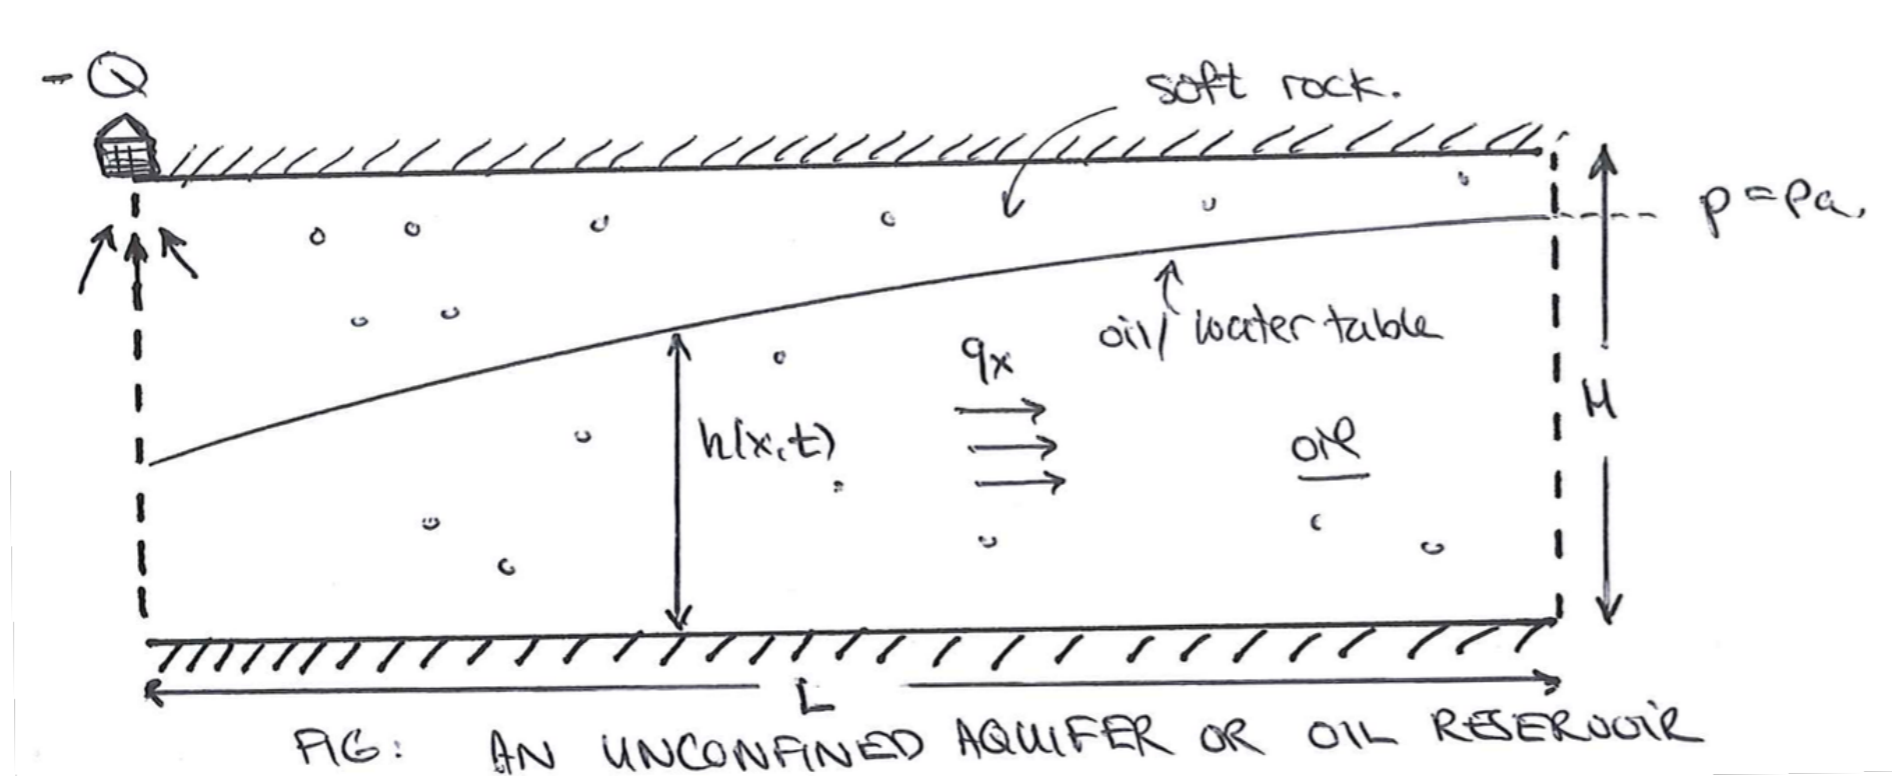 - Q
soft rock.
p = pa.
oil/water table
qx
H
h(x,t)
oil
L
FIG: AN UNCONFINED AQUIFER OR OIL RESERVOIR